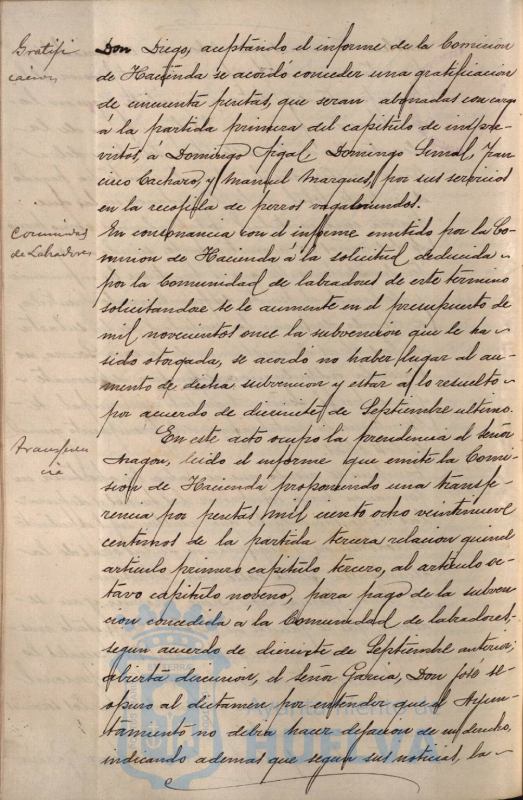 Gratifi
cacion,
Don Diego, aceptando el informe de la Comision
de Hacienda se acordó conceder una gratificacion
de cincuenta pesetas, que seran abonadas con cargo
á la partida primera del capítulo de impre-
vistos, á Domingo Domingo Fran-
cisco y Manuel Marques, por sus servicios
en la recogida de perros vagabundos.
Comunidad
de Labradores
En consonancia con el informe emitido por la Co-
mision de Hacienda á la solicitud deducida
por la Comunidad de labradores de este termino
solicitandose se le aumente en el presupuesto de
mil novecientos once la subvencion que le ha
sido otorgada, se acordo no haber lugar al au-
mento de dicha subvencion y estar á lo resuelto
por acuerdo de diecisiete de Septiembre ultimo.
transferen
cia
En este acto ocupo la presidencia el Señor
Aragon, leido el informe que emite la Comi-
sion de Hacienda proponiendo una transfe-
rencia por pesetas mil ciento ocho veintinueve
centimos de la partida tercera relacion quince
articulo primero capitulo tercero, al articulo oc-
tavo capitulo noveno, para pago de la subven-
cion concedida á la Comunidad de labradores,
segun acuerdo de diecisiete de Septiembre anterior;
abierta discusion, el señor Garcia, Don José se
opuso al dictamen por entender que el Ayun-
tamiento no debia hacer dejacion de su derecho,
indicando ademas que segun sus noticias, la
Ayuntamiento de
HUELVA